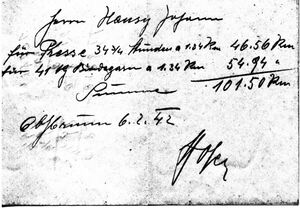 Herrn Hansy Johann
für Presse 34 3/4 Stunden a 1.34 Rm 46.56 Rm
für 41 kg Bindegarn a 1.34 Rm 54.94 "
Summe 101.50 Rm
6.2.42